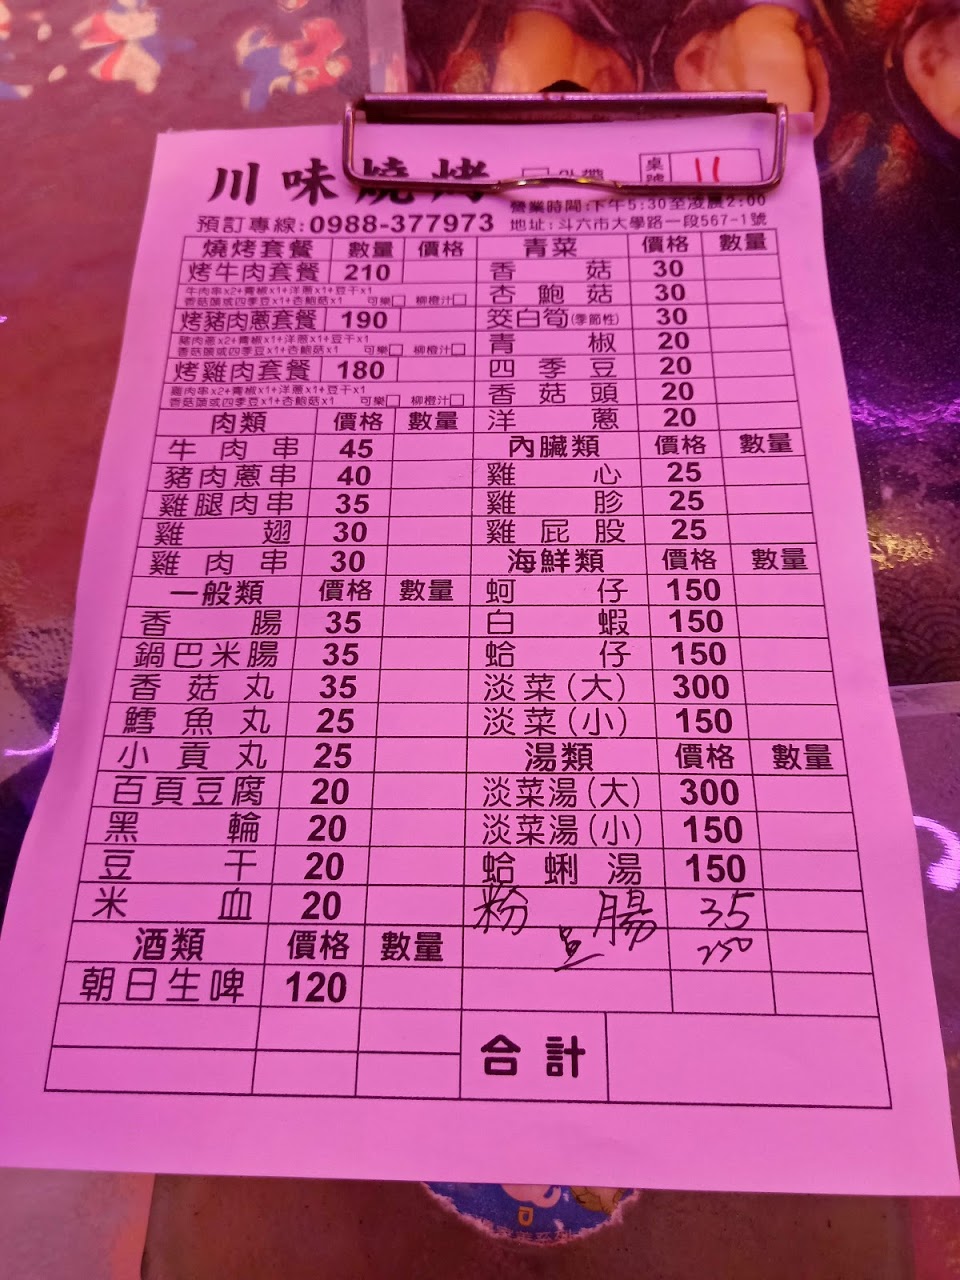 川味燒烤
外帶
桌號 11
營業時間:下午5:30至凌晨2:00
預訂專線:0988-377973
地址:斗六市大學路一段567-1號
燒烤套餐 數量 價格
烤牛肉套餐 210
牛肉串x2+青椒x1+洋蔥x1+豆干x1
香菇頭或四季豆x1+杏鮑菇x1 可樂□ 柳橙汁□
烤豬肉蔥套餐 190
豬肉蔥x2+青椒x1+洋蔥x1+豆干x1
香菇頭或四季豆x1+杏鮑菇x1 可樂□ 柳橙汁□
烤雞肉套餐 180
雞肉串x2+青椒x1+洋蔥x1+豆干x1
香菇頭或四季豆x1+杏鮑菇x1 可樂□ 柳橙汁□
肉類 價格 數量
牛肉串 45
豬肉蔥串 40
雞腿肉串 35
雞翅 30
雞肉串 30
一般類 價格 數量
香腸 35
鍋巴米腸 35
香菇丸 35
鱈魚丸 25
小貢丸 25
百頁豆腐 20
黑輪 20
豆干 20
米血 20
酒類 價格 數量
朝日生啤 120
青菜 價格 數量
香菇 30
杏鮑菇 30
筊白筍(季節性) 30
青椒 20
四季豆 20
香菇頭 20
洋蔥 20
內臟類 價格 數量
雞心 25
雞胗 25
雞屁股 25
海鮮類 價格 數量
蚵仔 150
白蝦 150
蛤仔 150
淡菜(大) 300
淡菜(小) 150
湯類 價格 數量
淡菜湯(大) 300
淡菜湯(小) 150
蛤蜊湯 150
粉腸 35
250
合計